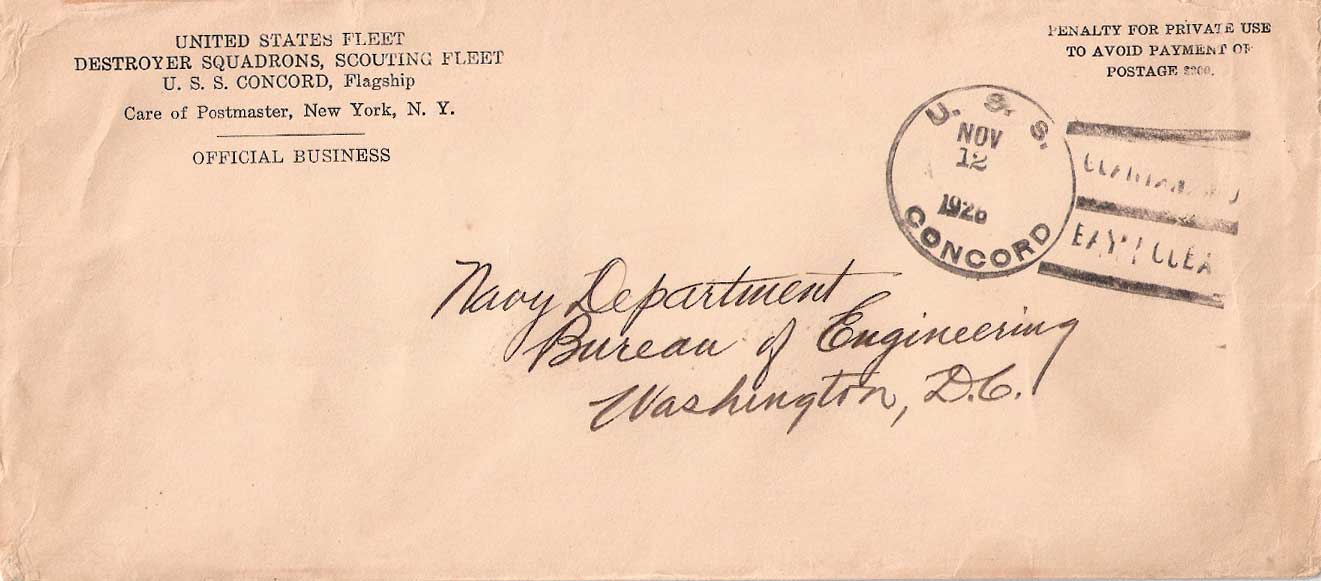 UNITED STATES FLEET
DESTROYER SQUADRONS, SCOUTING FLEET
U. S. S. CONCORD, Flagship
Care of Postmaster, New York, N. Y.
OFFICIAL BUSINESS
PENALTY FOR PRIVATE USE
TO AVOID PAYMENT OF
POSTAGE $300.
U. S. S.
NOV
12
CONCORD
Navy Department
Bureau of Engineering
Washington, D.C.